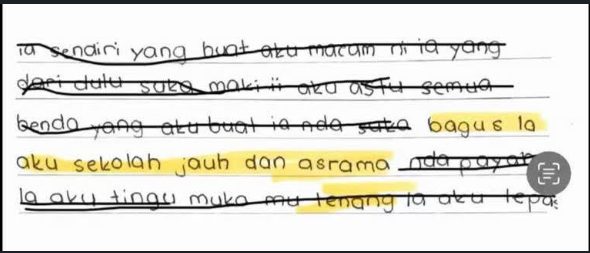 ia sendiri yang buat aku macam ni ia yang
dari dulu suka maki ii aku astu semua
benda yang aku buat ia nda suka bagus la
aku sekolah jauh dan asrama nda payah
la aku tingu muka mu tenang la aku lepas